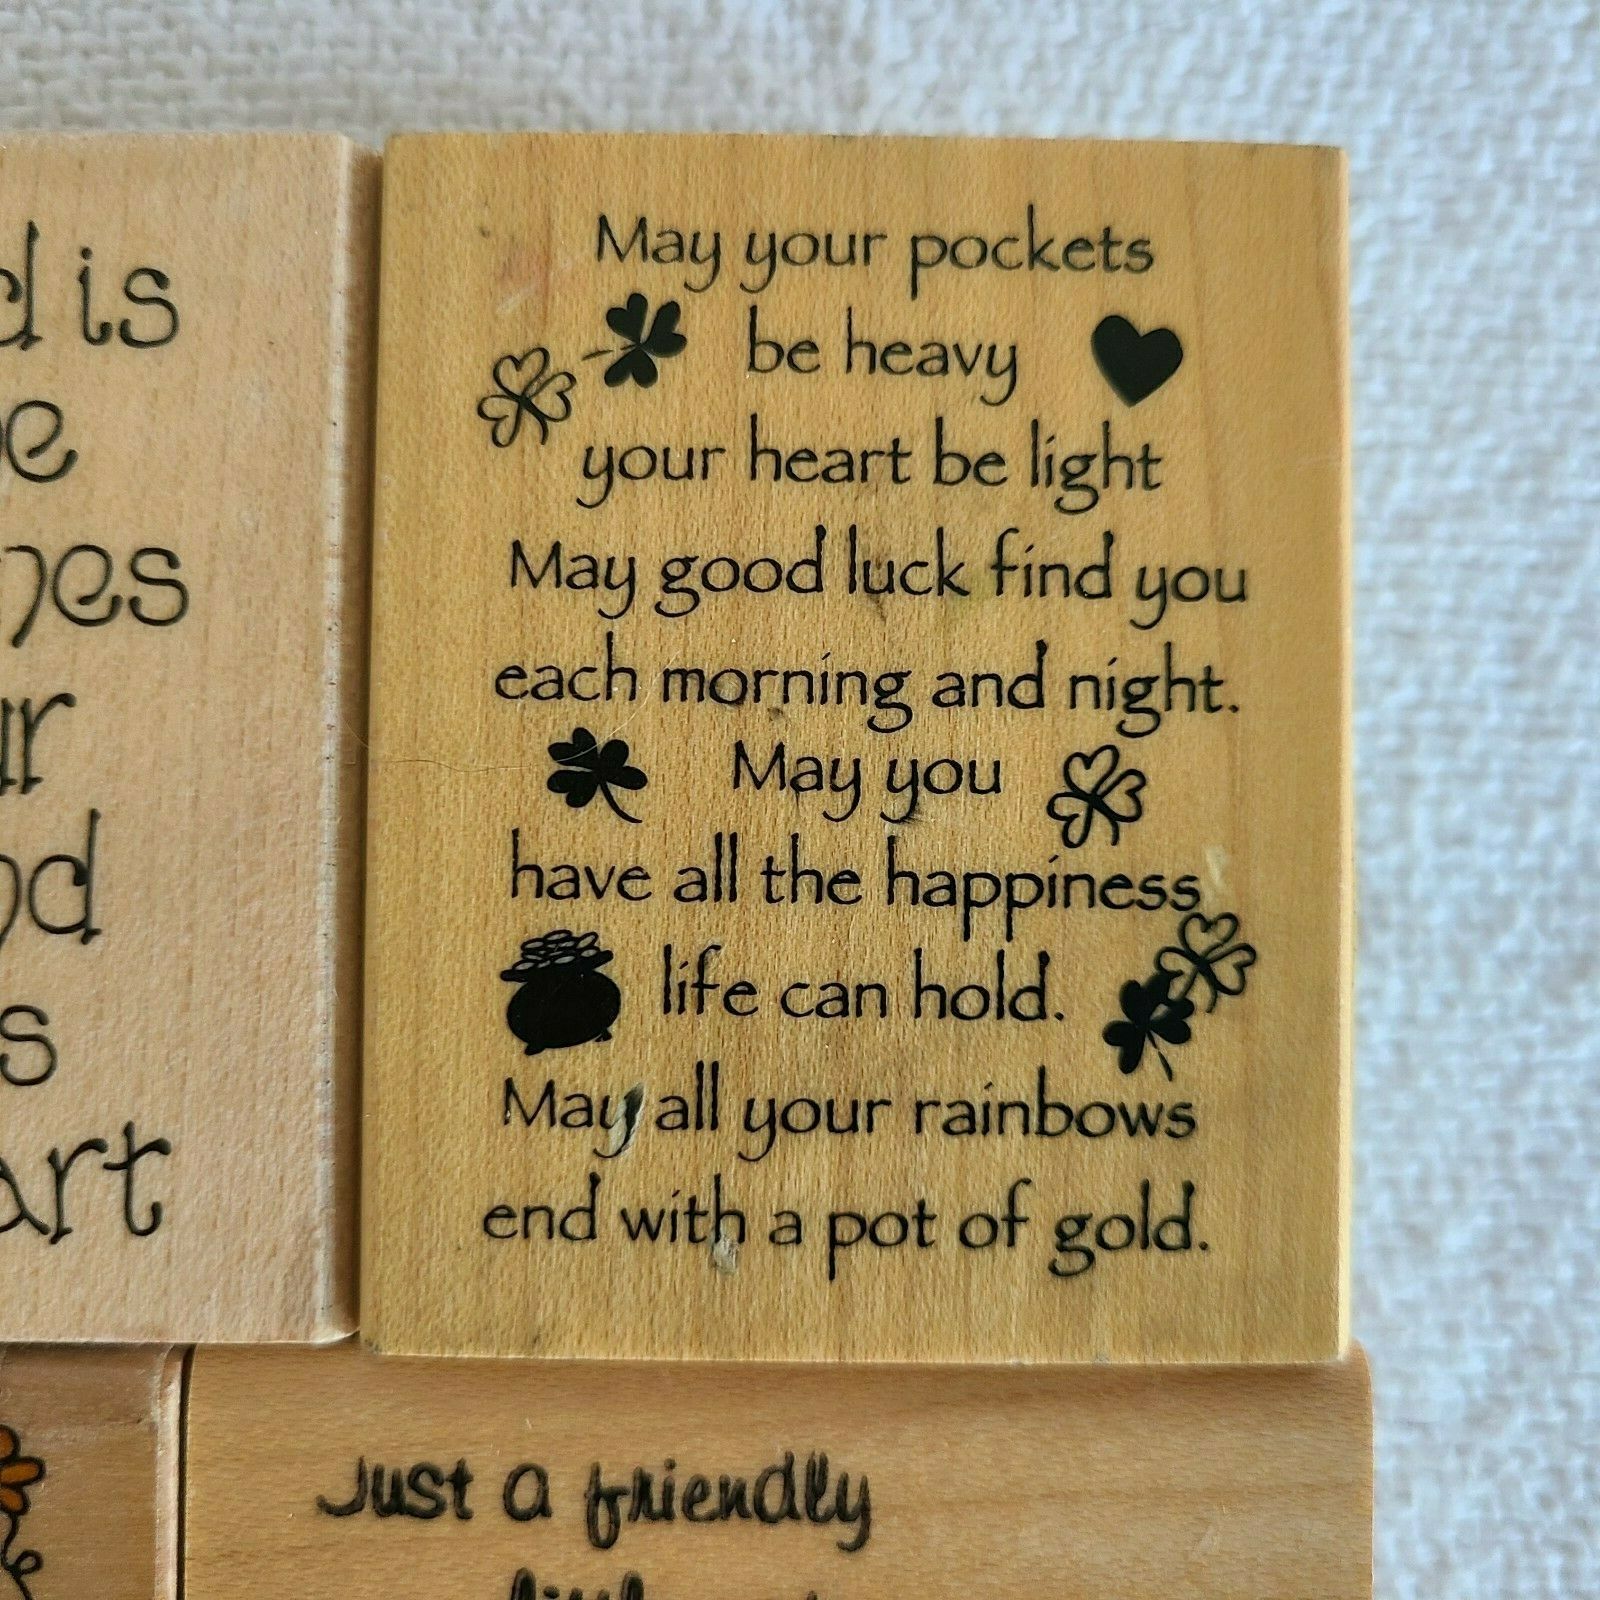 d is
nes
ur
nd
s
art
May your pockets
be heavy
your heart be light
May good luck find you
each morning and night.
May you
have all the happiness
life can hold.
May all your rainbows
end with a pot of gold.
Just a friendly